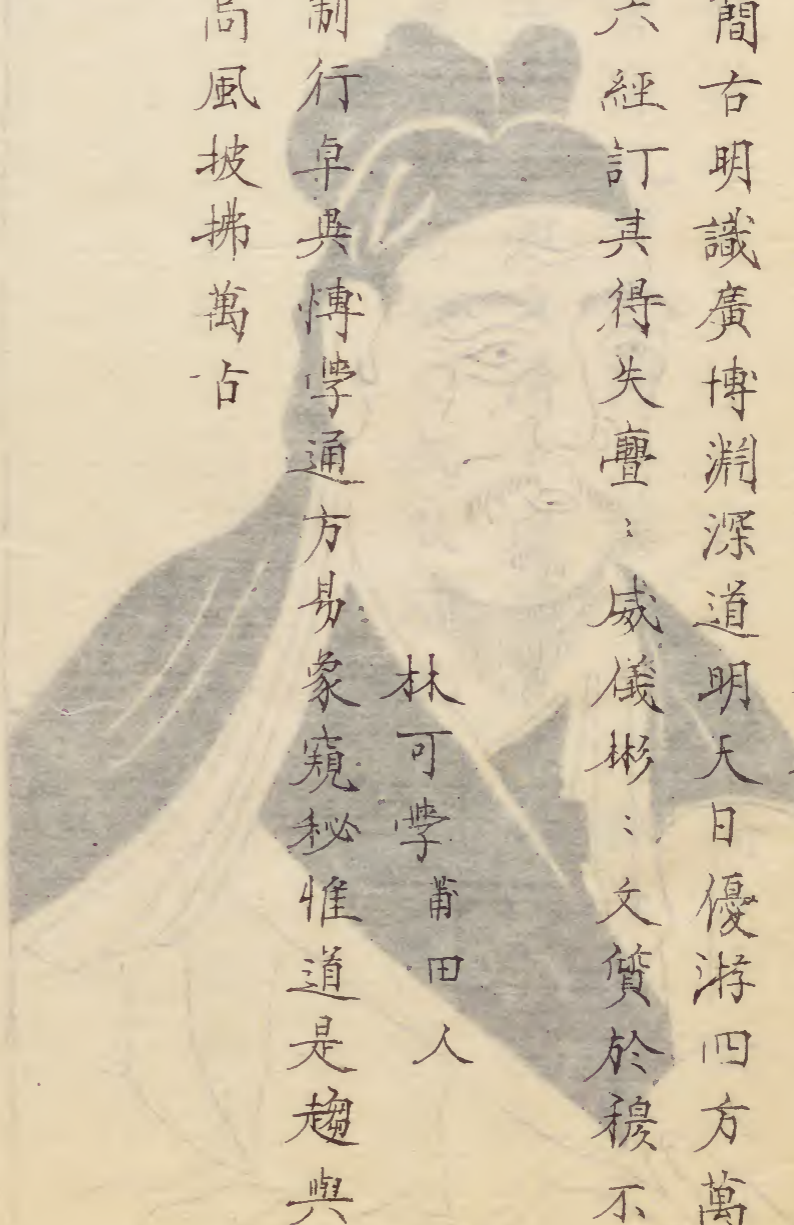 間右明識廣博淵深道明天日優游四方萬
六經訂其得失亹〻威儀彬〻文質於穆不
林可學莆田人
制行卓異博學通方易象窺秘惟道是趨與
高風披拂萬古